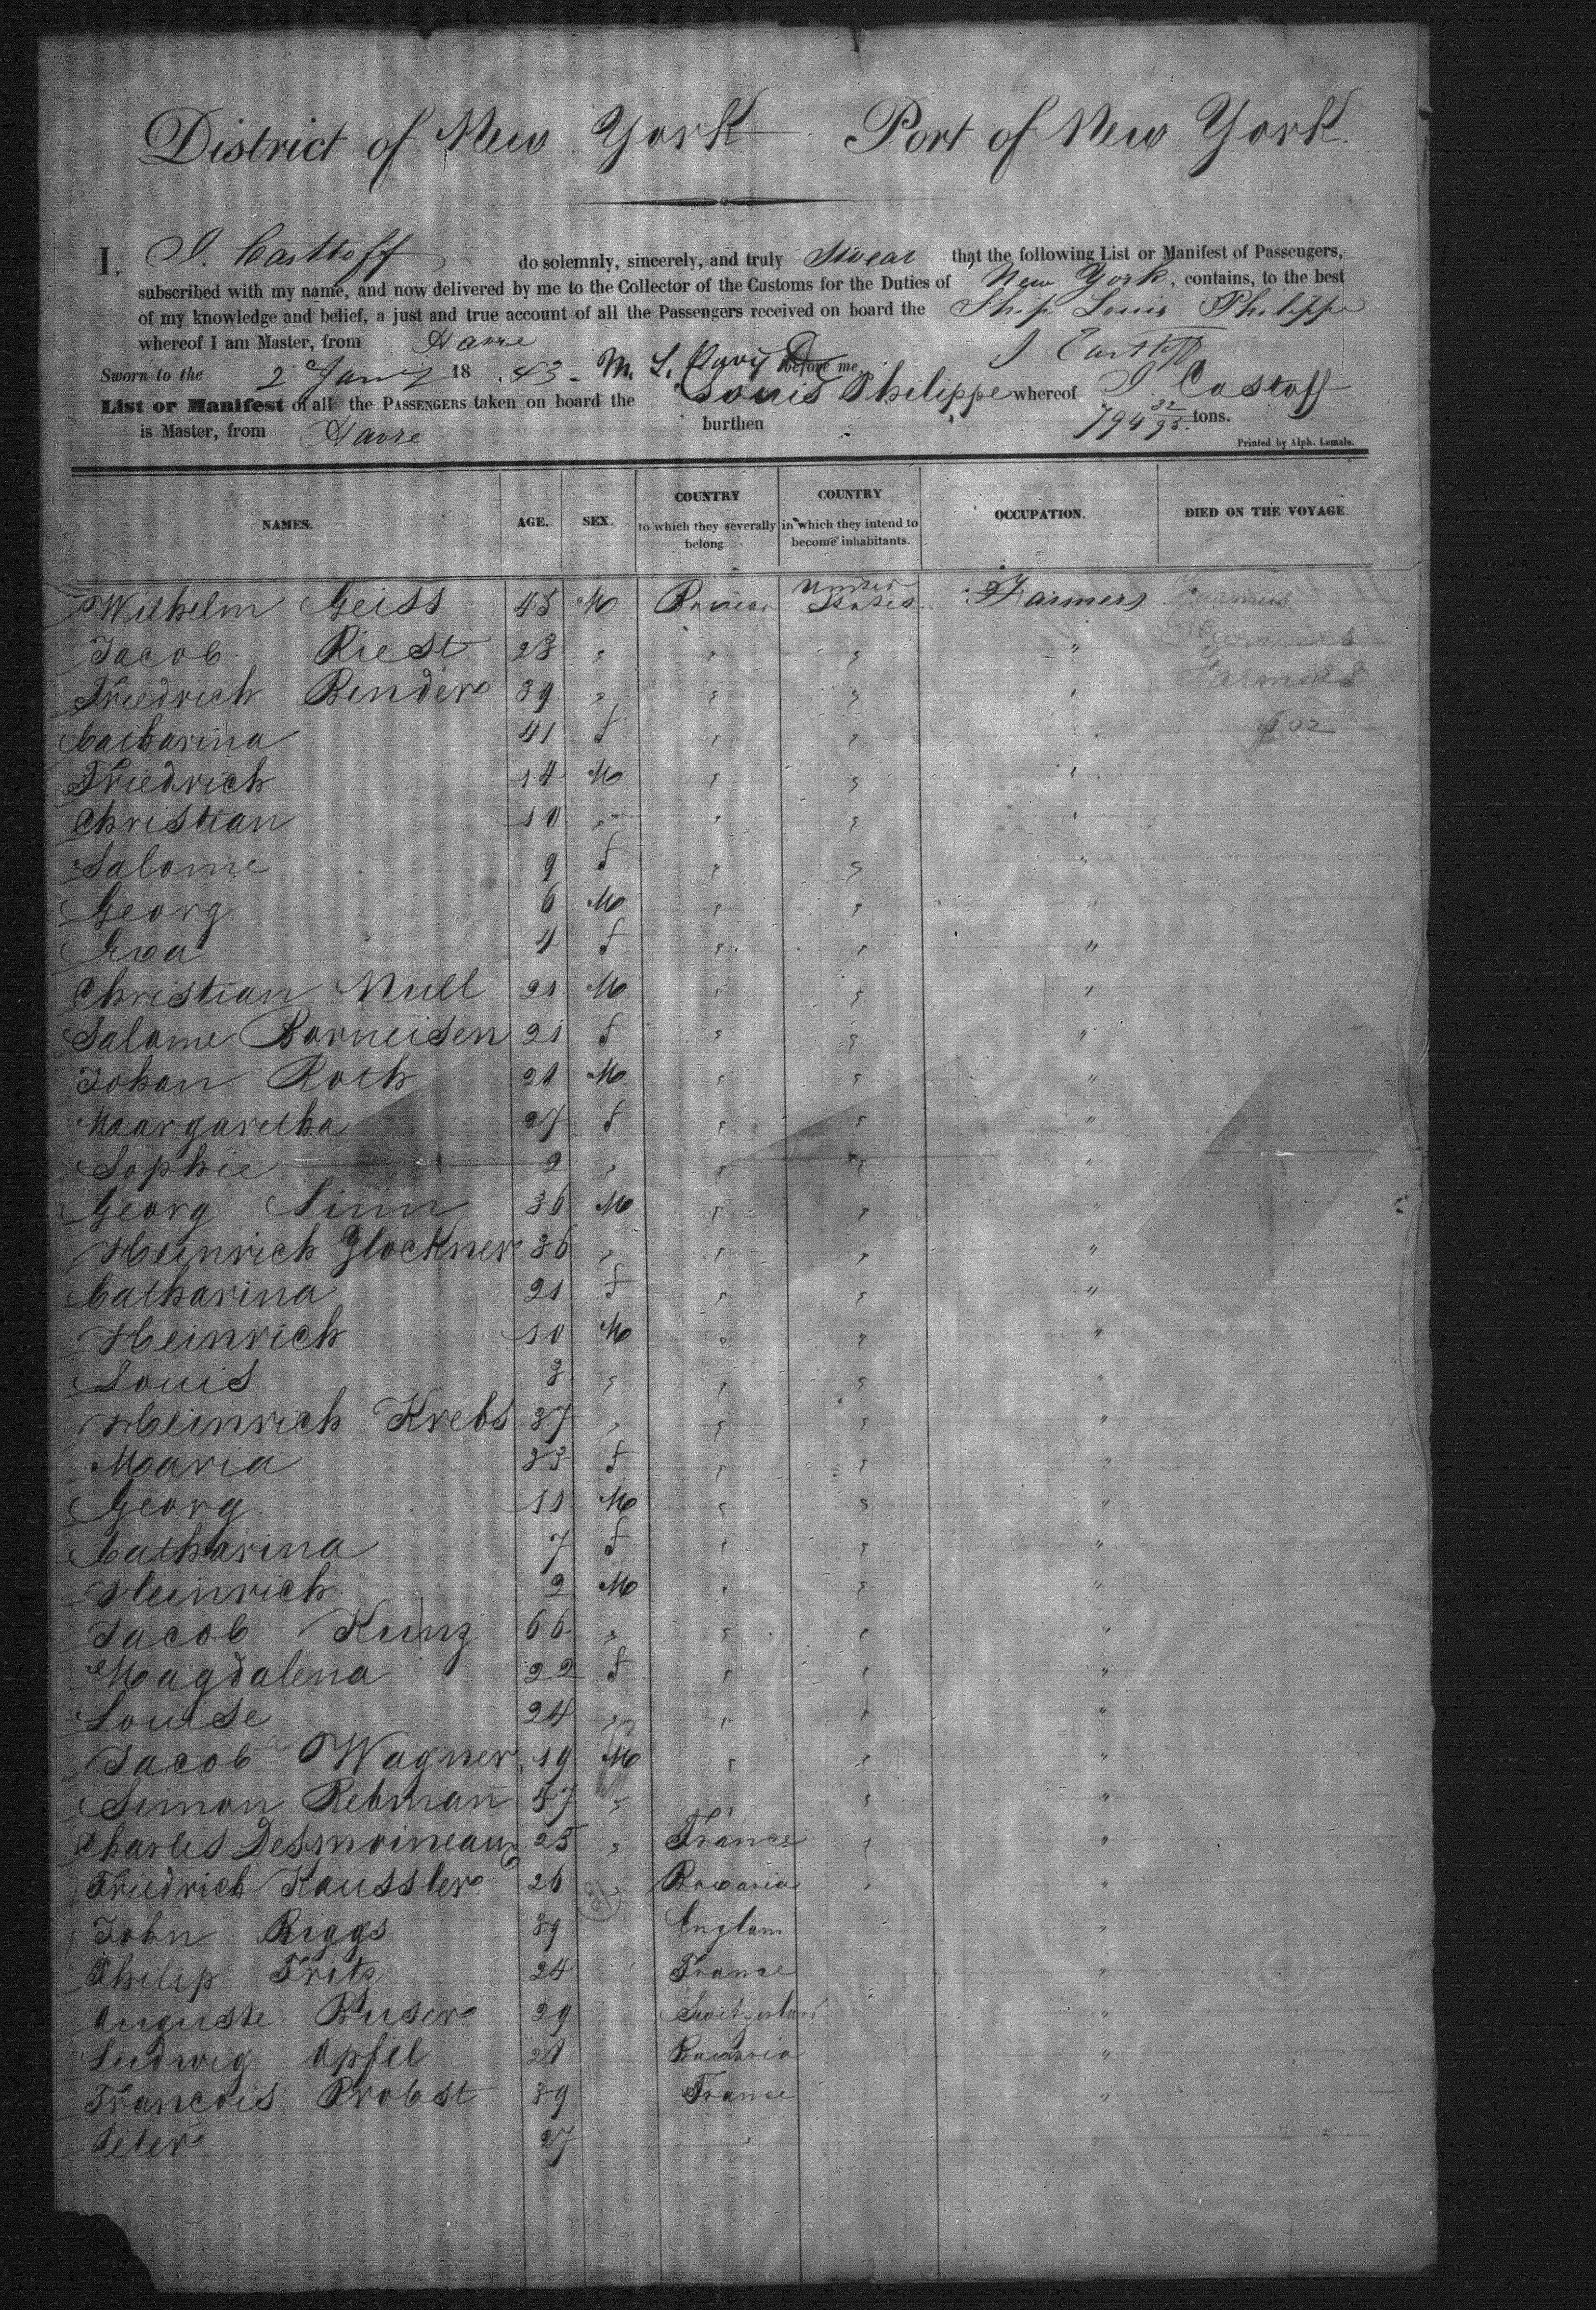 District of New York Port of New York.
I, I. Casttoff do solemnly, sincerely, and truly Swear that the following List or Manifest of Passengers,
subscribed with my name, and now delivered by me to the Collector of the Customs for the Duties of New York, contains, to the best
of my knowledge and belief, a just and true account of all the Passengers received on board the Ship Louis Philippe
whereof I am Master, from Havre
Sworn to the 2 Jany 1843. M. L. Davis before me, I Casttoff
List or Manifest of all the PASSENGERS taken on board the Louis Philippe whereof I Castoff
is Master, from Havre burthen 794 32/95 tons.
Printed by Alph. Lemale.
NAMES. AGE. SEX. COUNTRY to which they severally belong COUNTRY in which they intend to become inhabitants. OCCUPATION. DIED ON THE VOYAGE.
Wilhelm Geiss 45 M Bavaria United States Farmers Farmers
Jacob Riest 23 " " " " Farmers
Friedrich Binder 39 " " " " Farmers
Catharina 41 f " " "
Friedrich 14 M " " "
Christian 10 " " " "
Salome 9 f " " "
Georg 6 M " " "
Eva 4 f " " "
Christian Null 21 M " " "
Salome Borneisen 21 f " " "
Johan Roth 21 M " " "
Margaretha 27 f " " "
Sophie 2 " " " "
Georg Sinn 36 M " " "
Heinrich Glockner 36 " " " "
Catharina 21 f " " "
Heinrich 10 M " " "
Louis 3 " " " "
Heinrich Krebs 37 " " " "
Maria 33 f " " "
Georg 11 M " " "
Catharina 7 f " " "
Heinrich 2 M " " "
Jacob Kunz 66 " " " "
Magdalena 22 f " " "
Louise 24 " " " "
Jacob Wagner 19 M " " "
Simon Rebmañ 47 " " " "
Charles Desmoineaux 25 " France " "
Friedrich Kaussler 26 " Bavaria " "
John Riggs 39 Englam "
Philip Fritz 24 France "
Auguste Buser 29 Switzerland "
Ludwig Apfel 21 Bavaria "
Francois Probst 39 France "
Peter 27 "